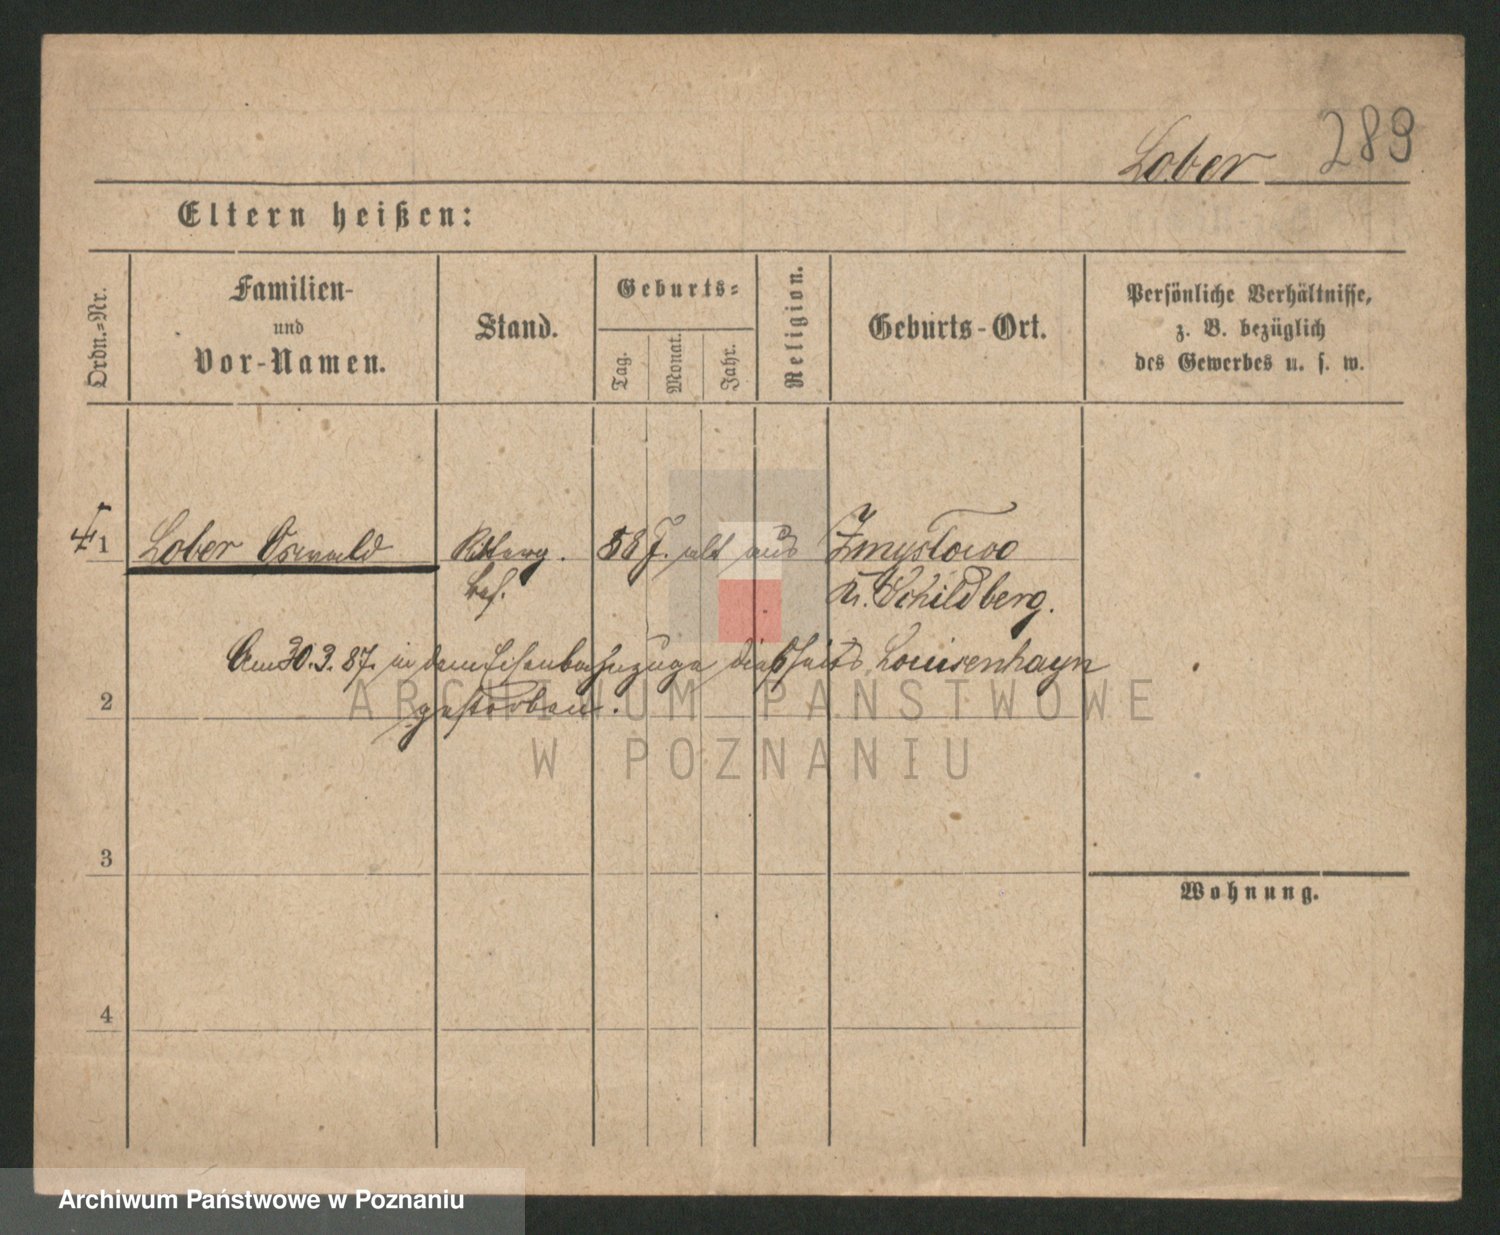 289
Lober
Eltern heißen:
Ordn.-Nr.
Familien-
und
Vor-Namen.
Stand.
Geburts-
Tag.
Monat.
Jahr.
Religion.
Geburts-Ort.
Persönliche Verhältnisse,
z. B. bezüglich
des Gewerbes u. s. w.
1 Lober Oswald Ritterg. 58 J. alt aus Zmyslowo
bes. Kr. Schildberg.
Am 30.3.87. in dem Eisenbahnzuge dießseits Louisenhayn
2
gestorben.
ARCHIWUM PAŃSTWOWE
W POZNANIU
3
Wohnung.
4
Archiwum Państwowe w Poznaniu